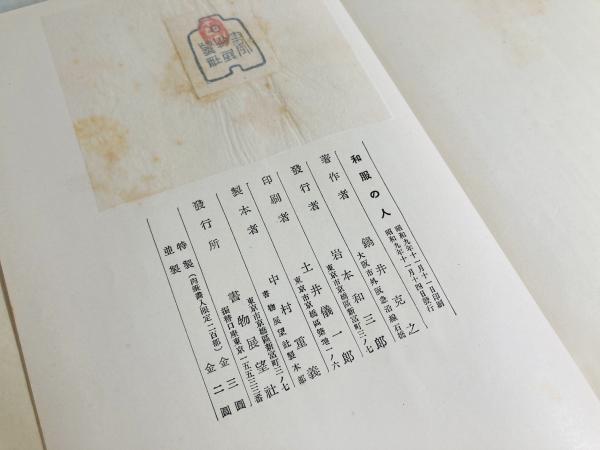 和服の人
昭和九年十一月十一日印刷
昭和九年十一月十四日發行
著作者 鍋井克之
大阪市外阪急沿線石橋
發行者 岩本和三郎
東京市京橋區新富町三ノ七
印刷者 土井儀一郎
東京市京橋區築地一ノ六
製本者 中村重義
書物展望社製本部
發行所 書物展望社
東京市京橋區新富町三ノ七
振替口座東京一五五三三番
特製(肉筆畫入限定二百部) 金三圓
並製 金二圓